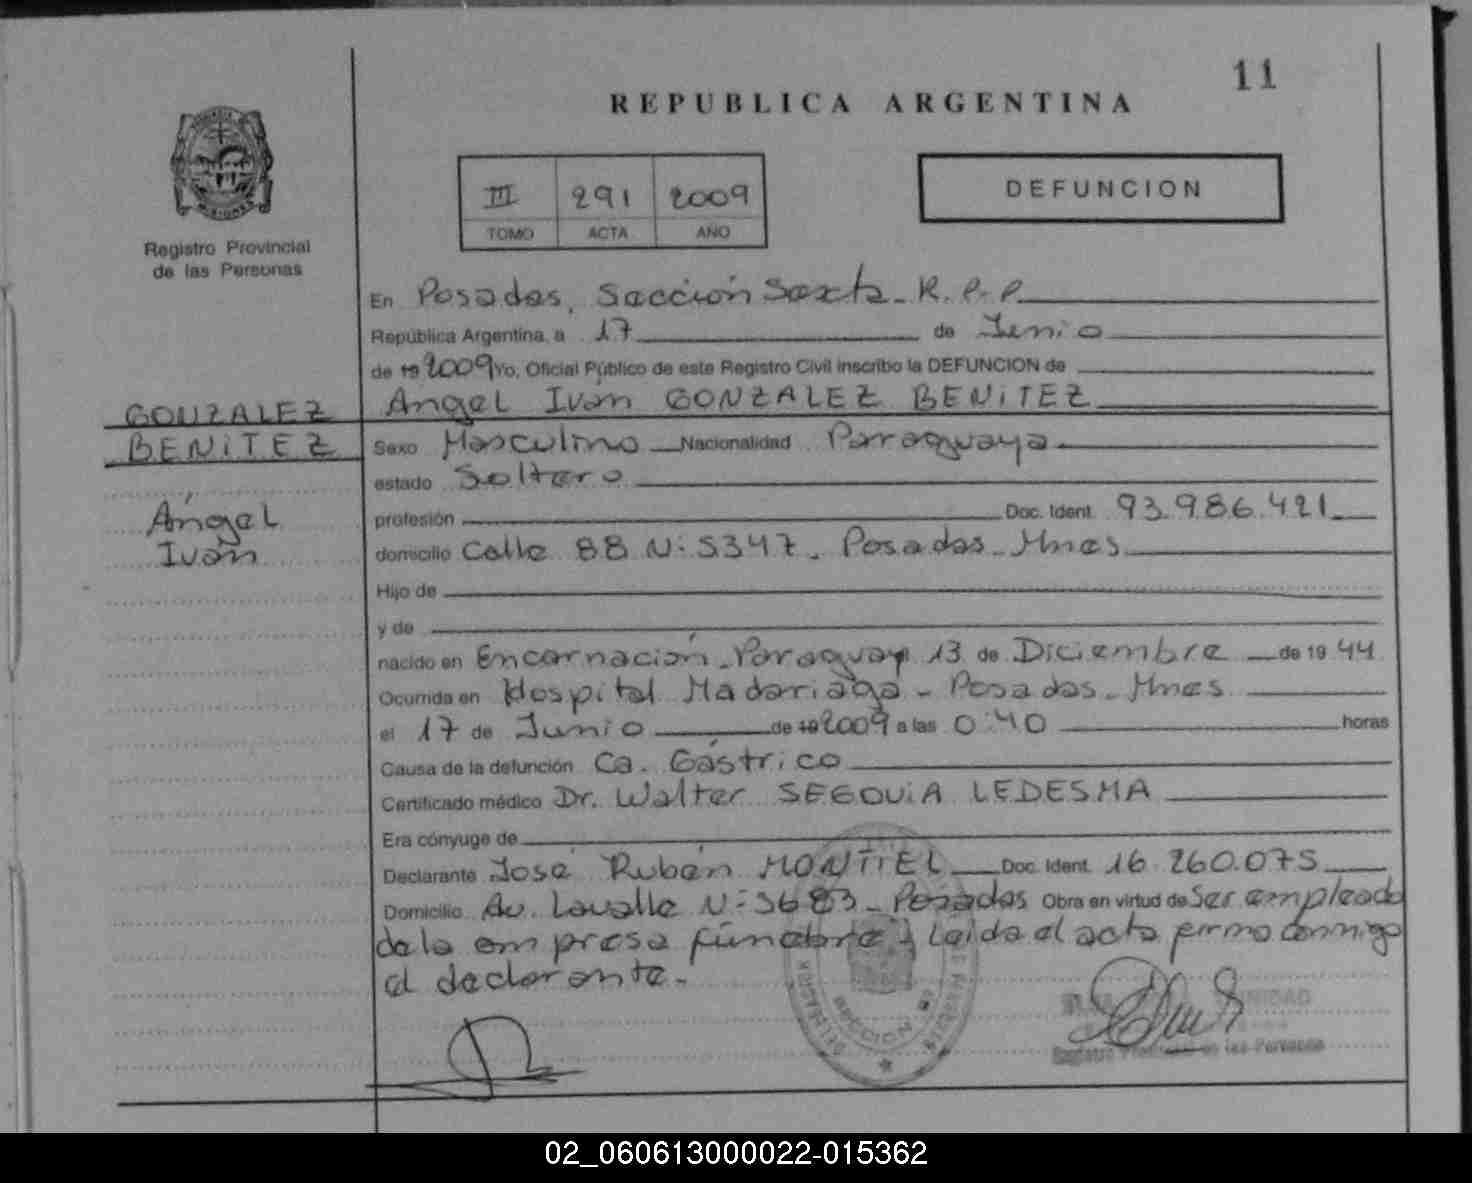 11
REPUBLICA ARGENTINA
III 291 2009
TOMO ACTA AÑO
DEFUNCION
MISIONES
Registro Provincial
de las Personas
En Posadas, Sección Sexta. R.P.P.
República Argentina, a 17 de Junio
de 19 2009 Yo, Oficial Público de este Registro Civil inscribo la DEFUNCION de
GONZALEZ Angel Iván GONZALEZ BENITEZ
BENITEZ Sexo Masculino Nacionalidad Paraguaya
estado Soltero
Ángel profesión Doc. Ident. 93.986.421
Iván domicilio Calle 88 N: 5347. Posadas. Mnes
Hijo de
y de
nacido en Encarnación. Paraguay 13 de Diciembre de 19 44
Ocurrida en Hospital Madariaga - Posadas. Mnes
el 17 de Junio de 19 2009 a las 0:40 horas
Causa de la defunción Ca. Gástrico
Certificado médico Dr. Walter SEGOVIA LEDESMA
Era cónyuge de
Declarante José Rubén MONTIEL Doc. Ident. 16.260.075
Domicilio Av. Lavalle N: 3683 - Posadas Obra en virtud de Ser empleado
de la empresa fúnebre y Leida el acta firma conmigo
el declarante.
SECCION
Registro Provincial de las Personas
02_060613000022-015362